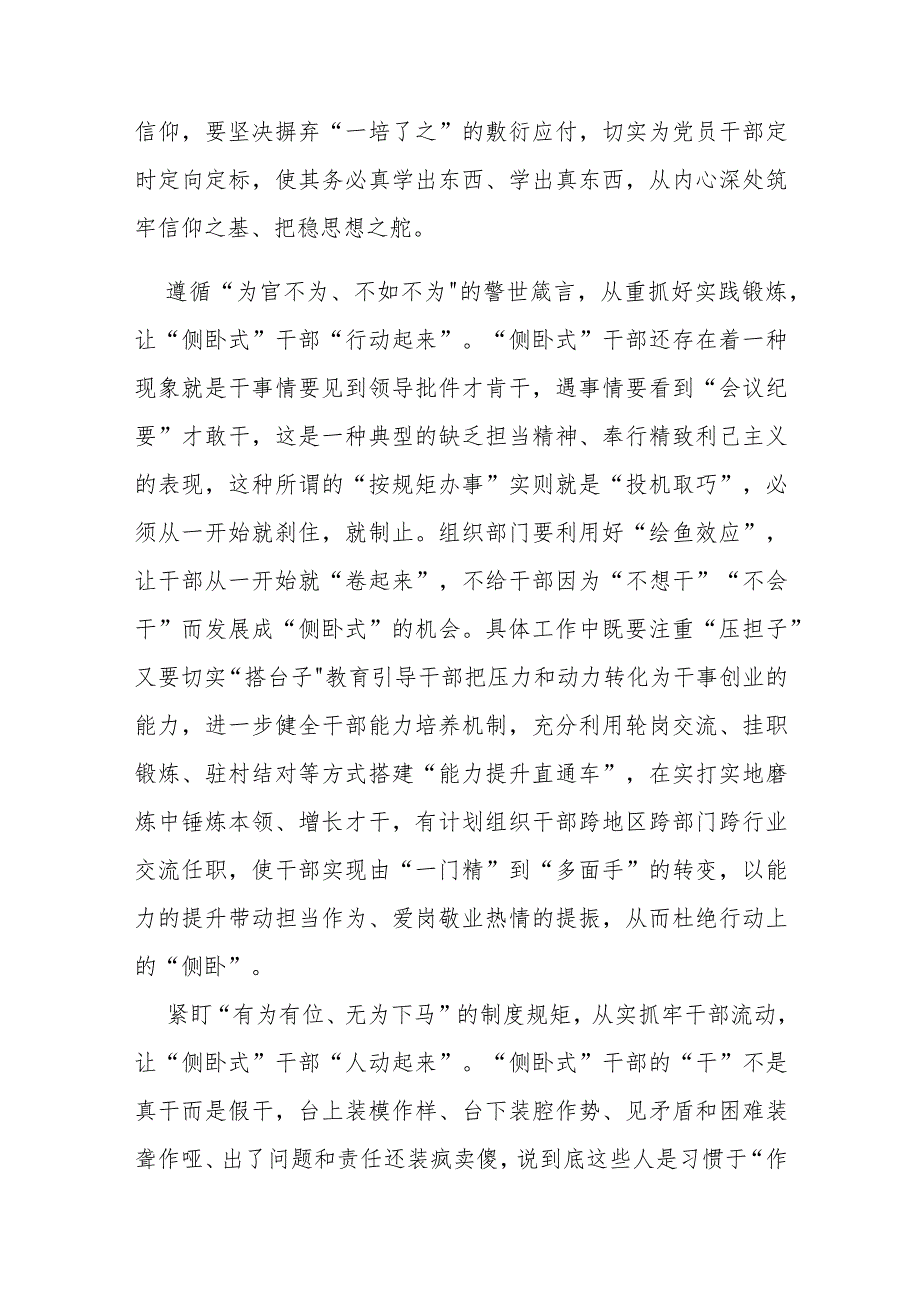 信仰，要坚决摒弃“一培了之”的敷衍应付，切实为党员干部定
时定向定标，使其务必真学出东西、学出真东西，从内心深处筑
牢信仰之基、把稳思想之舵。
遵循“为官不为、不如不为"的警世箴言，从重抓好实践锻炼，
让“侧卧式”干部“行动起来”。“侧卧式”干部还存在着一种
现象就是干事情要见到领导批件才肯干，遇事情要看到“会议纪
要”才敢干，这是一种典型的缺乏担当精神、奉行精致利己主义
的表现，这种所谓的“按规矩办事”实则就是“投机取巧”，必
须从一开始就刹住，就制止。组织部门要利用好“绘鱼效应”，
让干部从一开始就“卷起来”，不给干部因为“不想干”“不会
干”而发展成“侧卧式”的机会。具体工作中既要注重“压担子”
又要切实“搭台子"教育引导干部把压力和动力转化为干事创业的
能力，进一步健全干部能力培养机制，充分利用轮岗交流、挂职
锻炼、驻村结对等方式搭建“能力提升直通车”，在实打实地磨
炼中锤炼本领、增长才干，有计划组织干部跨地区跨部门跨行业
交流任职，使干部实现由“一门精”到“多面手”的转变，以能
力的提升带动担当作为、爱岗敬业热情的提振，从而杜绝行动上
的“侧卧”。
紧盯“有为有位、无为下马”的制度规矩，从实抓牢干部流动，
让“侧卧式”干部“人动起来”。“侧卧式”干部的“干”不是
真干而是假干，台上装模作样、台下装腔作势、见矛盾和困难装
聋作哑、出了问题和责任还装疯卖傻，说到底这些人是习惯于“作